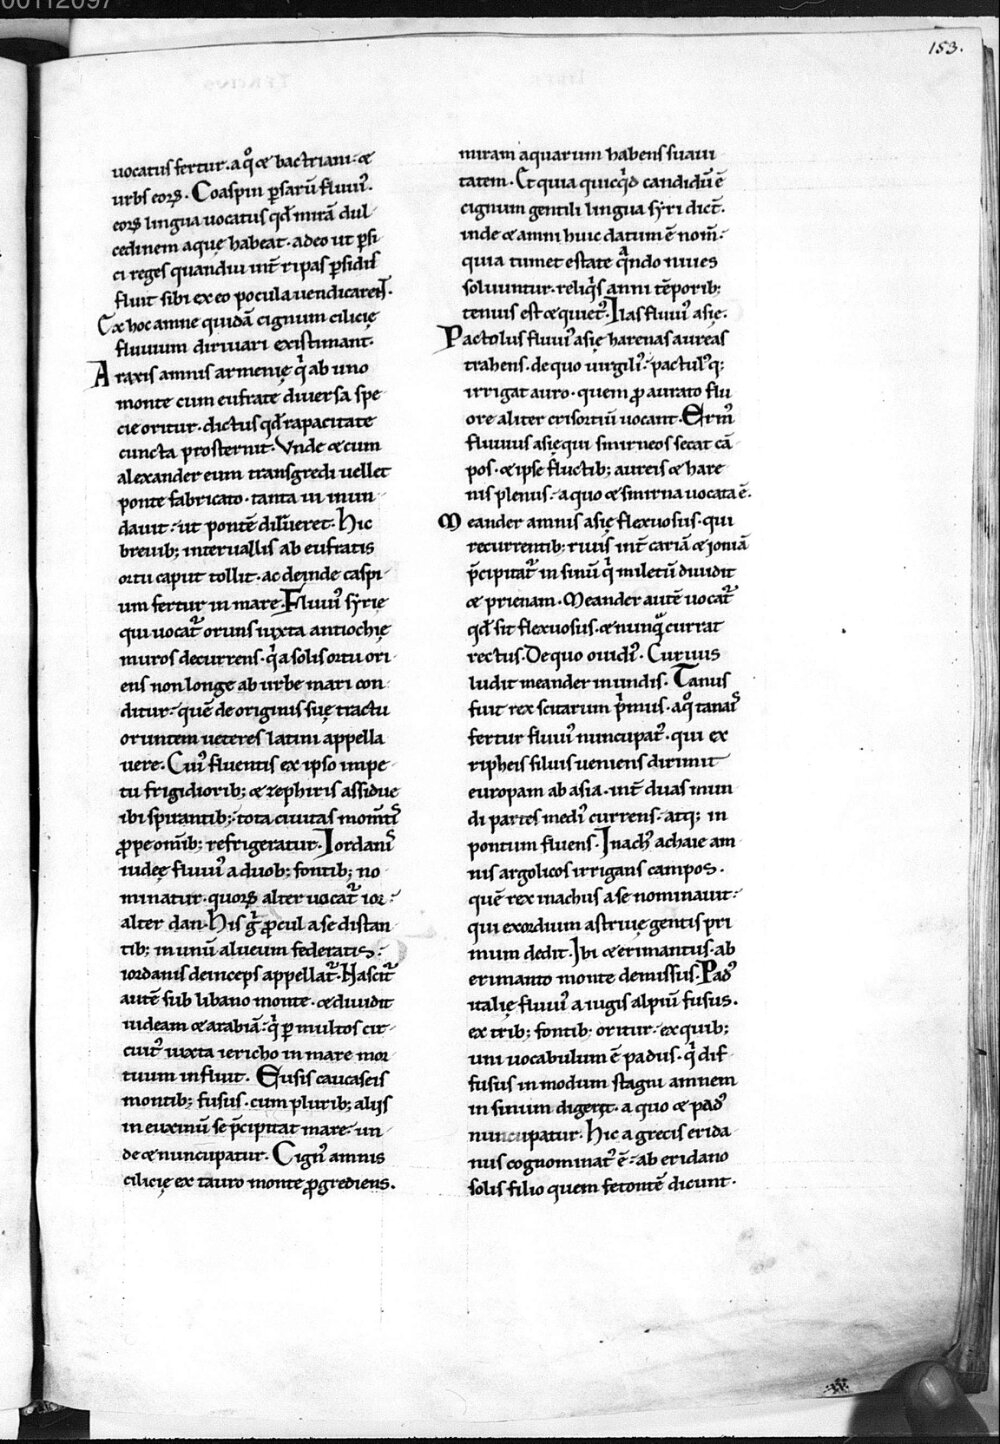 00112097
153.
uocatus fertur. a q̊ & bactriani. &
urbs eoꝝ. Coaspin ꝑsarū fluui᷒.
eoꝝ lingua uocatus qđ mirā dul
cedinem aquę habeat. adeo ut ꝑsi
ci reges quandiu int̄ ripas ꝑsidis
fluit sibi ex eo pocula uendicarent.
Ex hoc amne quidā cignum cilicię
fluuium diriuari existimant.
Araxis amnis armenię q̍ ab uno
monte cum eufrate diuersa spe
cie oritur. dictus qđ rapacitate
cuncta prosternit. Vnde & cum
alexander eum transgredi uellet
ponte fabricato. tanta ui inun
dauit. ut pontē dilueret. Hic
breuib; interuallis ab eufratis
ortu caput tollit. ac deinde caspi
um fertur in mare. Fluui᷒ syrię
qui uocat᷑ oruns iuxta antiochię
muros decurrens. q̍ a solis ortu ori
ens non longe ab urbe mari con
ditur. quē de originis suę tractu
oruntem ueteres latini appella
uere. Cui᷒ fluentis ex ipso impe
tu frigidiorib; & zephiris assidue
ibi spirantib; tota ciuitas momtis
ꝓpe omīb; refrigeratur. Iordanis
iudeę fluui᷒ a duob; fontib; no
minatur. quoꝝ alter uocat᷑ ior.
alter dan. His g̍ ꝓcul a se distan
tib; in unū alueum federatis.
iordanis deinceps appellat᷑. Nascit᷑
autē sub libano monte. & diuidit
iudeam & arabiā. q̍ ꝑ multos cir
cuit᷒ iuxta iericho in mare mor
tuum influit. Eusis caucaseis
montib; fusus. cum plurib; alijs
in euxinū se p̄cipitat mare. un
de & nuncupatur. Cign᷒ amnis
cilicię ex tauro monte ꝓgrediens.
miram aquarum habens suaui
tatem. Et quia quicq̍d candidū ē
cignum gentili lingua syri dic̄t.
inde & amni huic datum ē nom̄.
quia tumet estate q̄ndo niues
soluuntur. reliq̍s anni tēporib;
tenuis est & quiet᷒. Ilas fluui᷒ asię.
Pactolus fluui᷒ asię harenas aureas
trahens. de quo uirgili᷒. pactul᷒q;
irrigat auro. quem ꝓ aurato flu
ore aliter crisortiū uocant. Erm᷒
fluuius asię qui smirneos secat cā
pos. & ipse fluctib; aureis & hare
nis plenus. a quo & smirna uocata ē.
Meander amnis asię flexuosus. qui
recurrentib; riuis int̄ cariā & ioniā
p̄cipitat᷑ in sinū q̍ miletū diuidit
& prienam. Meander autē uocat᷑
qđ sit flexuosus. & nunquā currat
rectus. De quo ouidi᷒. Curuis
ludit meander in undis. Tanus
fuit rex scitarum p̍mus. a q̊ tanais
fertur fluui᷒ nuncupat᷒. qui ex
ripheis siluis ueniens dirimit
europam ab asia. int̄ duas mun
di partes medi᷒ currens. atq; in
pontum fluens. Inach᷒ achaie am
nis argolicos irrigans campos.
quē rex inachus a se nominauit.
qui exordium astriuę gentis pri
mum dedit. Ibi & erimantus. ab
erimanto monte demissus. Pad᷒
italię fluui᷒ a iugis alpiū fusus.
ex trib; fontib; oritur. ex quib;
uni uocabulum ē padus. q̍ dif
fusus in modum stagni amnem
in sinum digerit. a quo & pad᷒
nuncupatur. Hic a grecis erida
nus cognominat᷒ ē. ab eridano
solis filio quem fetontē dicunt.